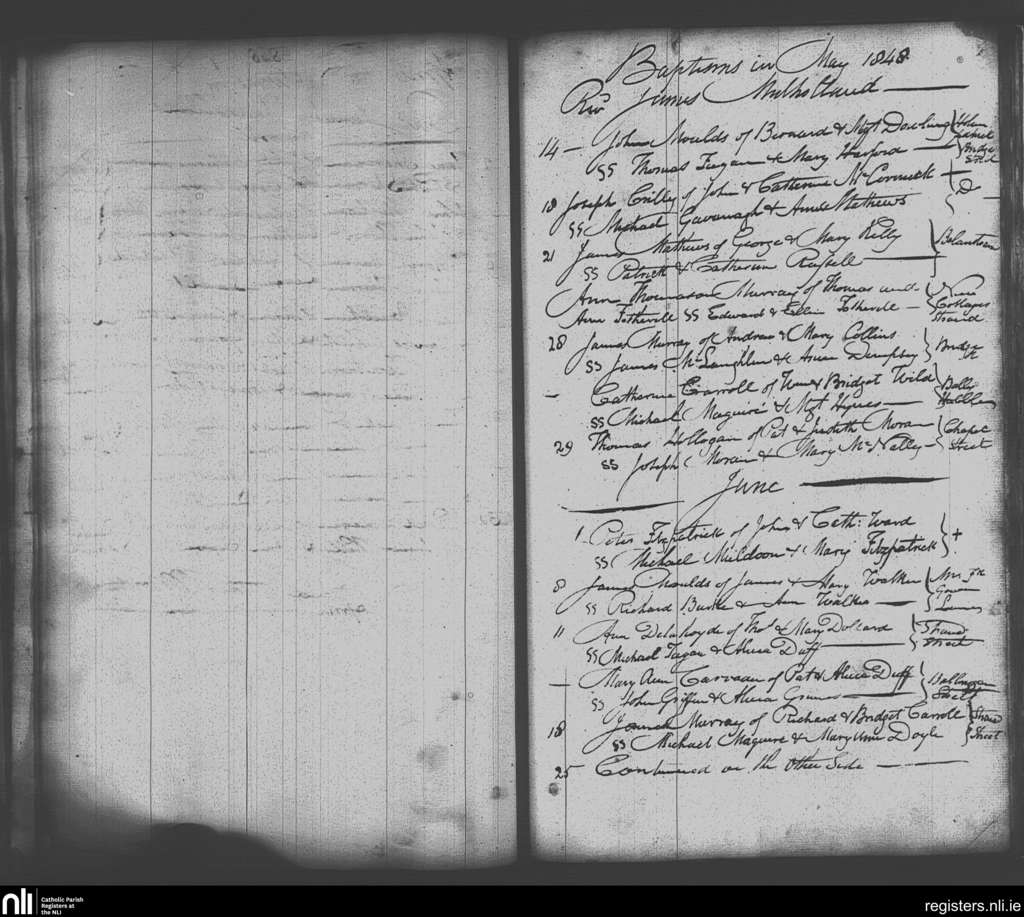 Baptisms in May 1848
Revd James Mulholland
14 – John Moulds of Bernard & Mgt Dowling
SS Thomas Fagan & Mary Harford Bridge
18 Joseph Crilly of John & Catherine McCormick
SS Michael Cavanagh & Anne Mathews
21 James Mathews of George & Mary Kelly
SS Patrick & Catherine Russell
Ann Thomason Murray of Thomas and New
Ann Fotherville SS Edward & Ellen Fotherville – Cottages
Strand
28 James Murray of Andrew & Mary Collins Bridge
SS James McLaughlin & Anne Dempsey St
– Catherine Carroll of Wm & Bridget Wild Bally
SS Michael Maguire & Mgt Hynes
29 Thomas Hollogan of Pat & Judith Moran Chapel
SS Joseph Moran & Mary McNally – Street
June
1 Peter Fitzpatrick of John & Cath: Ward
SS Michael Muldoon & Mary Fitzpatrick +
8 James Moulds of James & Mary Walker
SS Richard Burke & Ann Walker
11 Ann Delahoyde of Thos & Mary Dollard Strand
SS Michael Fagan & Alicia Duff Street
– Mary Ann Carvan of Pat & Alicia Duff
SS John Griffin & Alicia Grimes Street
18 Murray of Richard & Bridget Carroll Strand
SS Michael Maguire & Mary Ann Doyle Street
25 Continued on the Other Side
nli Catholic Parish
Registers at
the NLI
registers.nli.ie